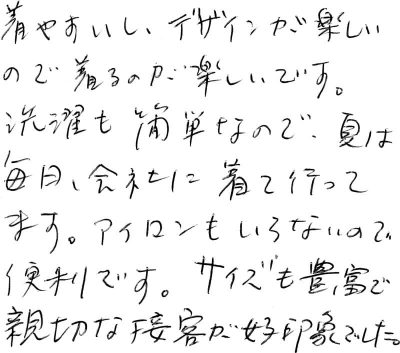 着やすいし、デザインが楽しい
ので着るのが楽しいです。
洗濯も簡単なので、夏は
毎日、会社に着て行って
ます。アイロンもいらないので
便利です。サイズも豊富で
親切な接客が好印象でした。